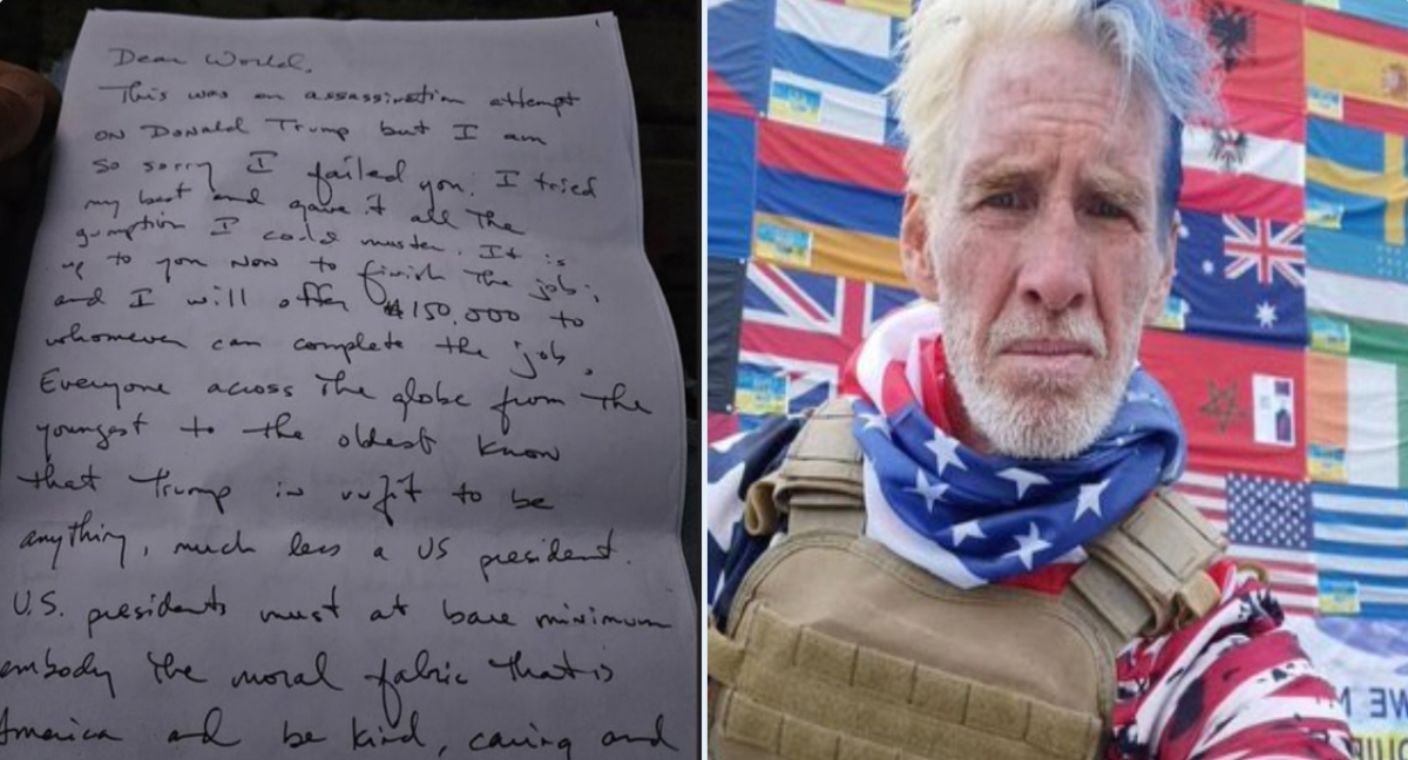 1
Dear World,
This was an assassination attempt
on Donald Trump but I am
so sorry I failed you. I tried
my best and gave it all the
gumption I could muster. It is
up to you now to finish the job;
and I will offer $150,000 to
whomever can complete the job.
Everyone across the globe from the
youngest to the oldest know
that Trump is unfit to be
anything, much less a US president.
U.S. presidents must at bare minimum
embody the moral fabric that is
America and be kind, caring and
WE M